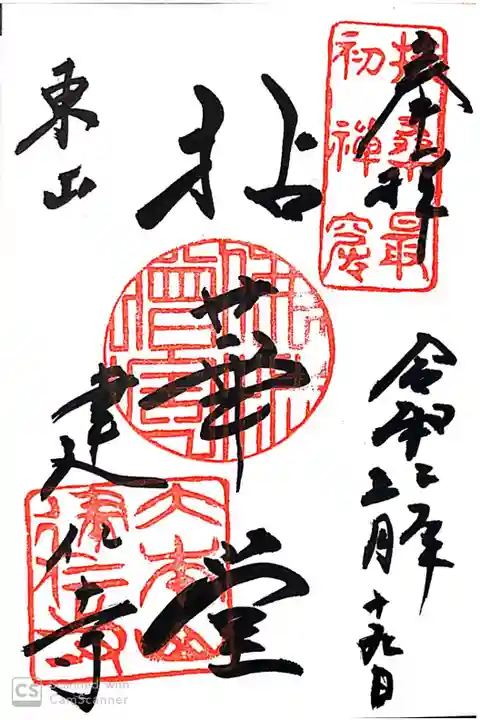 奉拝
扶桑最
初禅窟
令和二年
三月十九日
拈華堂
東山
建仁寺
大本山
建仁寺
CS Scanned with
CamScanner